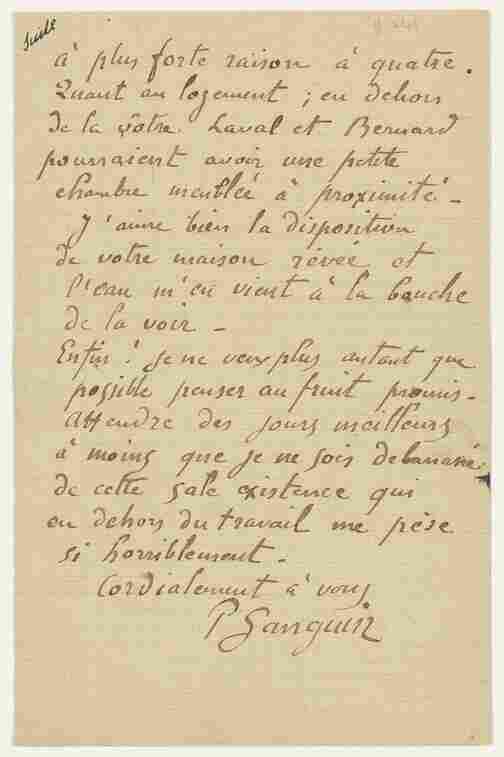 Suite
à plus forte raison à quatre.
Quant au logement ; en dehors
de la vôtre Laval et Bernard
pourraient avoir une petite
chambre meublée à proximité –
J'aime bien la disposition
de votre maison rêvée et
l'eau m'en vient à la bouche
de la voir –
Enfin ! Je ne veux plus autant que
possible penser au fruit promis –
Attendre des jours meilleurs
à moins que je ne sois débarrassé
de cette sale existence qui
en dehors du travail me pèse
si horriblement –
Cordialement à vous
P Gauguin